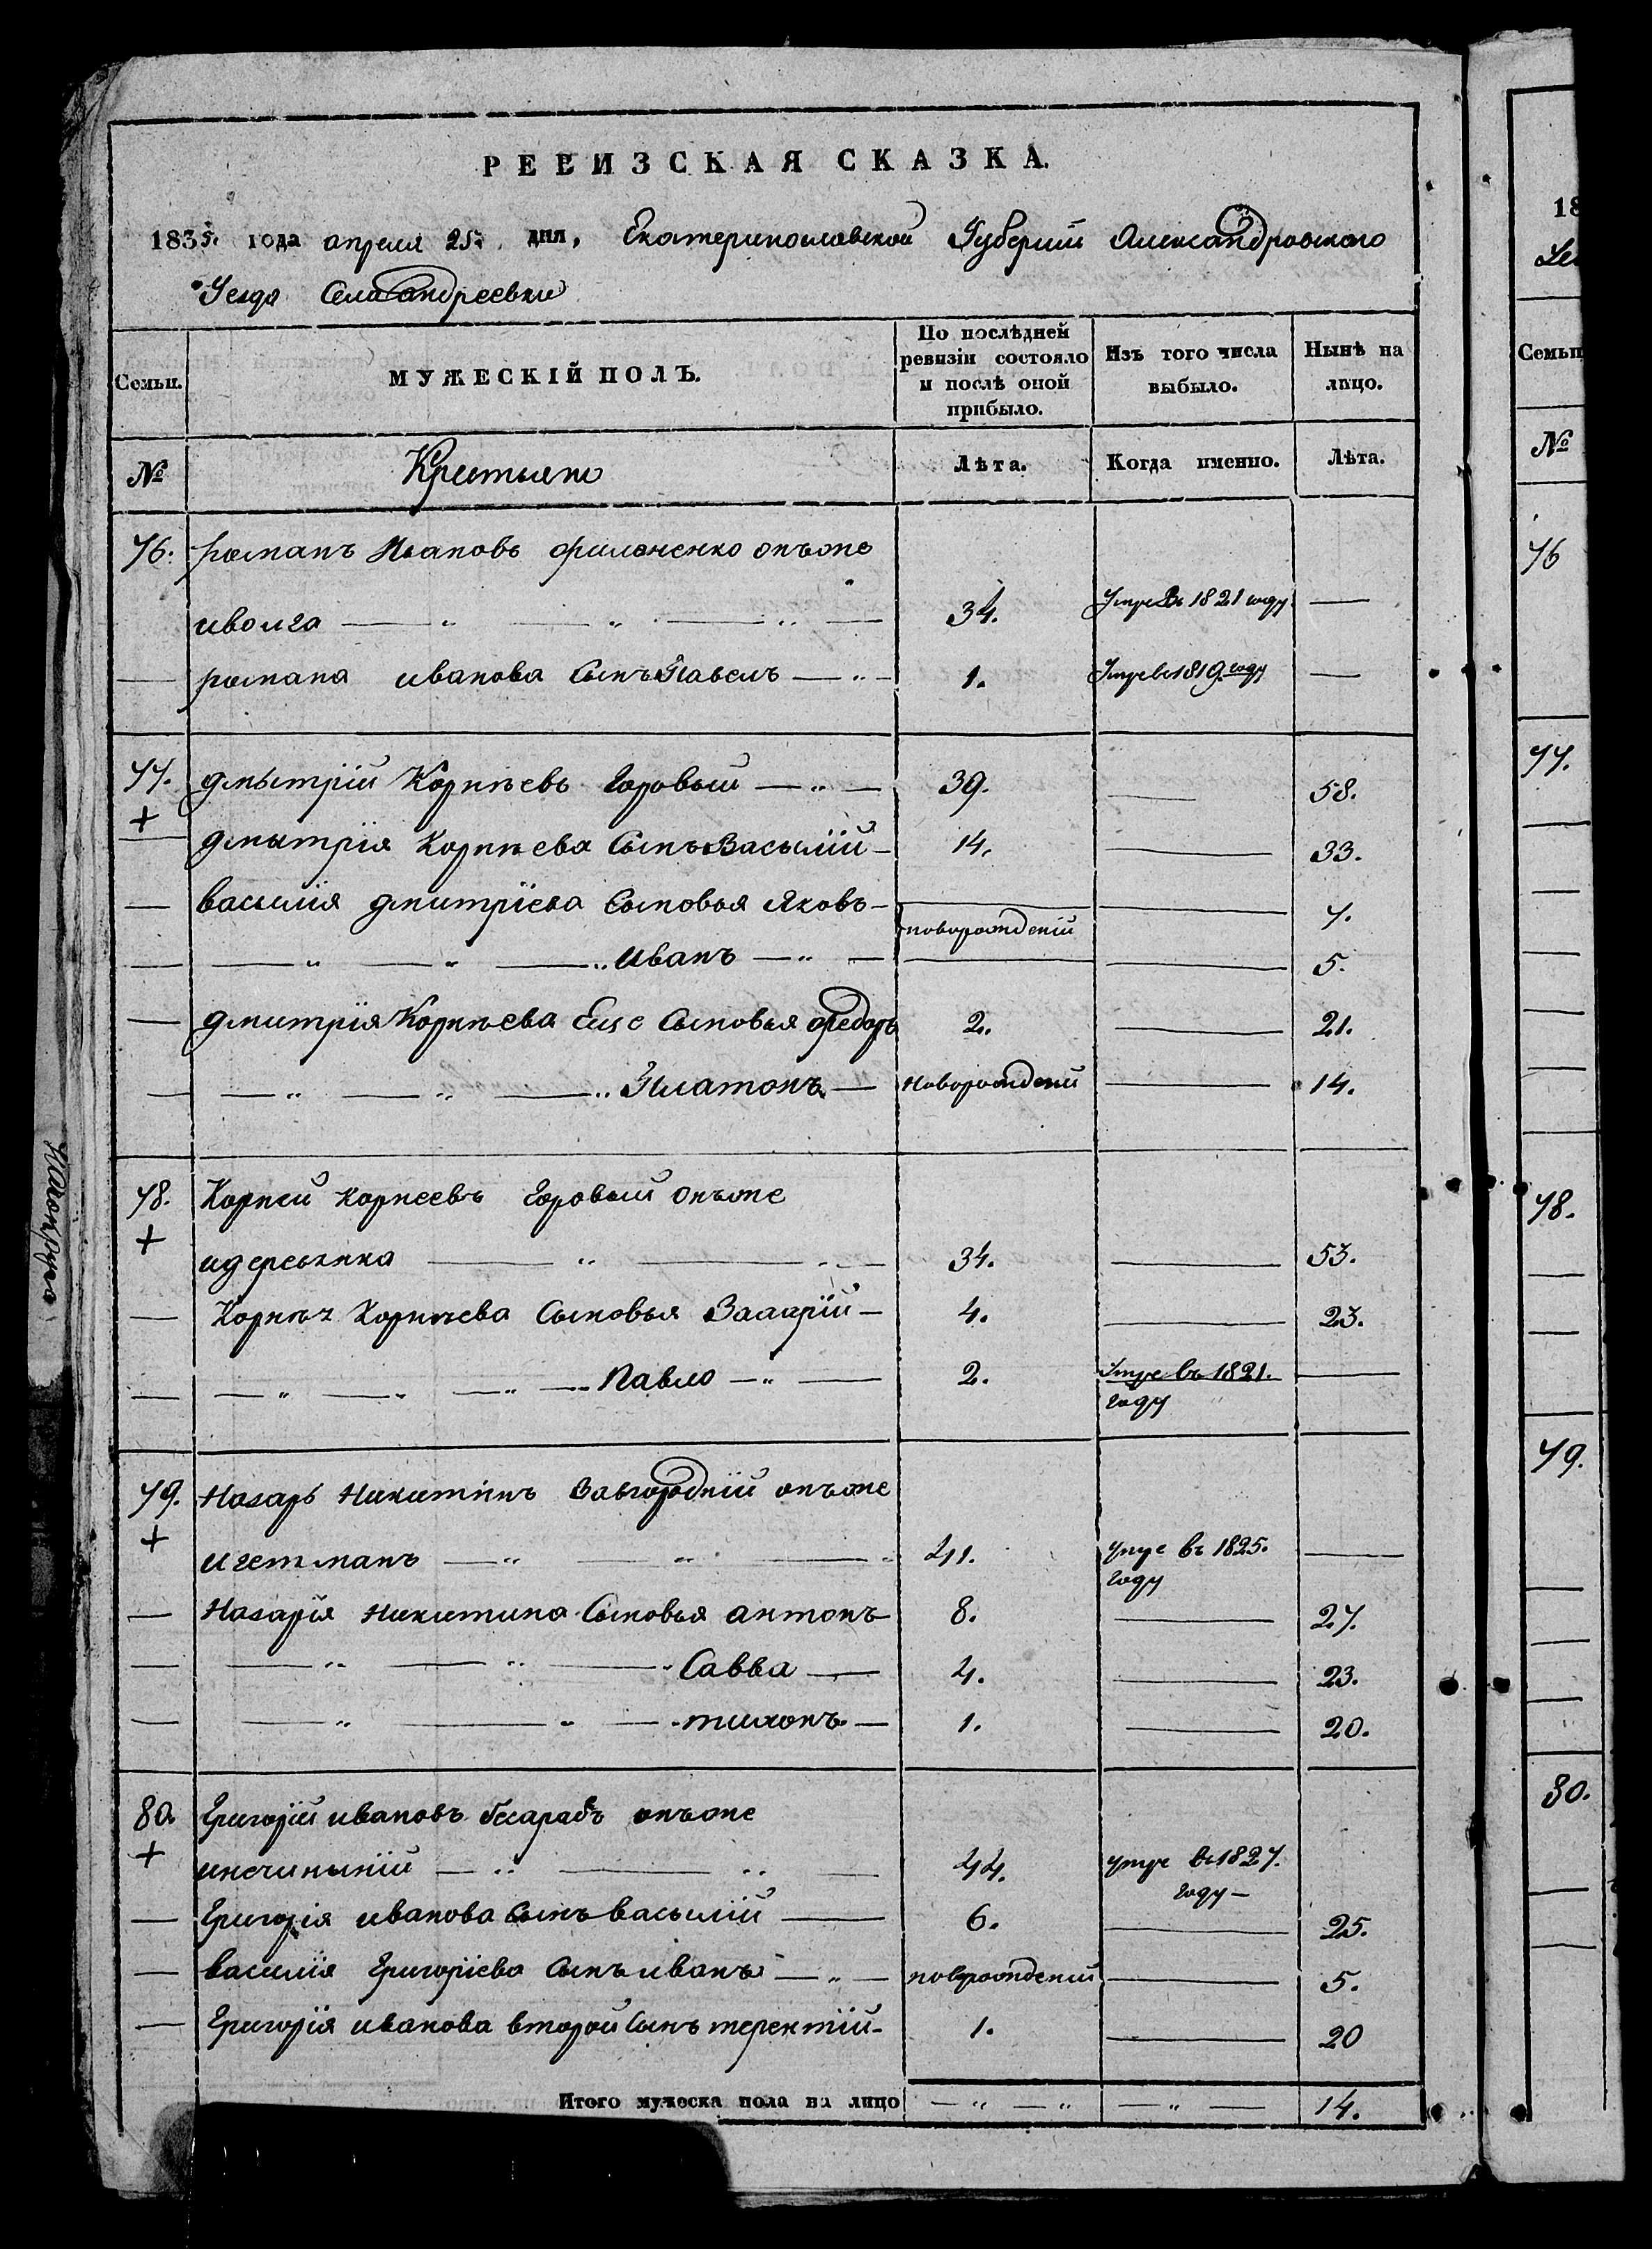 РЕВИЗСКАЯ СКАЗКА.
1835. года апреля 25. дня, Екатеринославской Губернии Александровского
Уезда Села андреевки
Семьи. МУЖЕСКІЙ ПОЛЪ. По послѣдней ревизіи состояло и послѣ оной прибыло. Изъ того числа выбыло. Нынѣ на лицо.
№ Крестьяне Лѣта. Когда именно. Лѣта.
76. романъ Ивановъ онъже
иволга 34. Умре Въ 1821 году —
романа иванова Сынъ Павелъ 1. Умре в 1819 году —
77. дмытрій Корнѣевъ Горовый 39. — 58.
+
дмытрія Корнѣева Сынъ Васылій 14. — 33.
василія дмитріева Сыновья Яковъ — 7.
новорожденій
иванъ — 5.
дмитрія Корнѣева Еще Сыновья федоръ 2. — 21.
Платонъ новорожденій — 14.
78. Корней корнеевъ Горовый онъже
+
идеревянка 34. — 53.
Корнѣя Корнѣева Сыновья Захарій 4. — 23.
Павло 2. Умре въ 1821. —
году
79. Назаръ Никитинъ Завгородній онъже
+
игетманъ 41. умре въ 1825. —
году
Назарія Никитина Сыновья антонъ 8. — 27.
Савва 4. — 23.
тихонъ 1. — 20.
80. Григорій ивановъ бесарабъ онъже
+
44. умре въ 1827.
году —
Григорія иванова сынъ васылій 6. — 25.
василія Григоріева Сынъ иванъ новорожденій — 5.
Григорія иванова второй Сынъ терентій 1. — 20
Итого мужеска пола на лицо 14.
18
Семьи
№
76
77.
78.
79.
80.